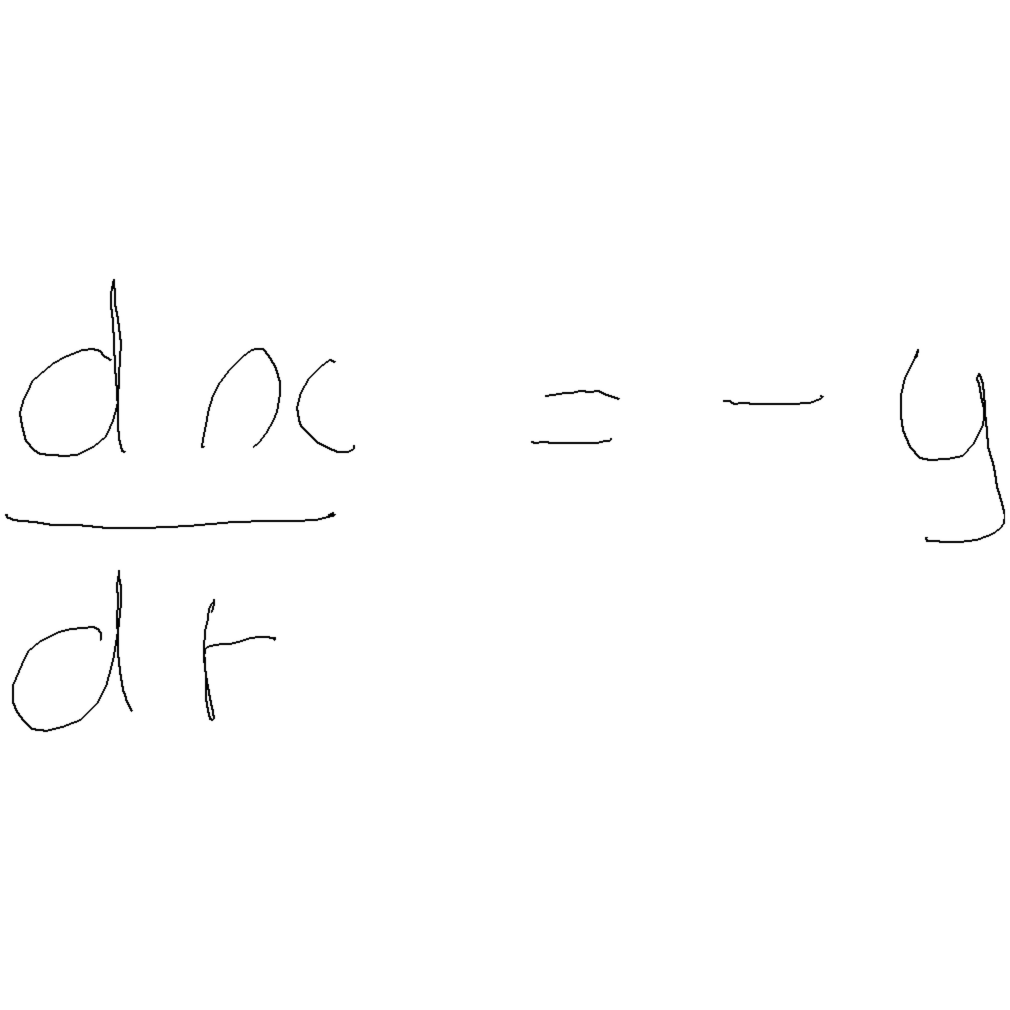 \frac{dx}{dt} = -y